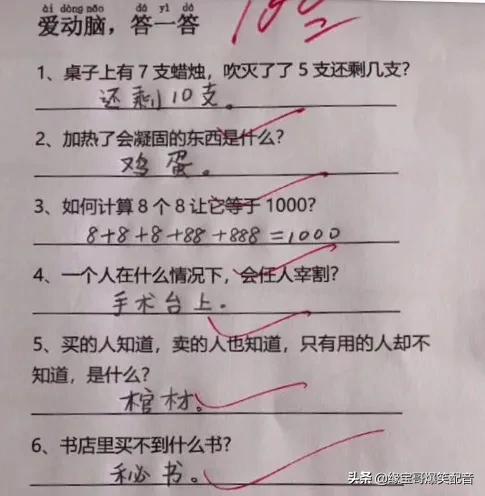 ài dòng nǎo dá yì dá
爱动脑，答一答
1、桌子上有 7 支蜡烛，吹灭了了 5 支还剩几支？
还剩10支。
2、加热了会凝固的东西是什么？
鸡蛋。
3、如何计算 8 个 8 让它等于 1000？
8+8+8+88+888=1000
4、一个人在什么情况下，会任人宰割？
手术台上.
5、买的人知道，卖的人也知道，只有用的人却不
知道，是什么？
棺材。
6、书店里买不到什么书？
秘书。
头条 @缘宝哥爆笑配音